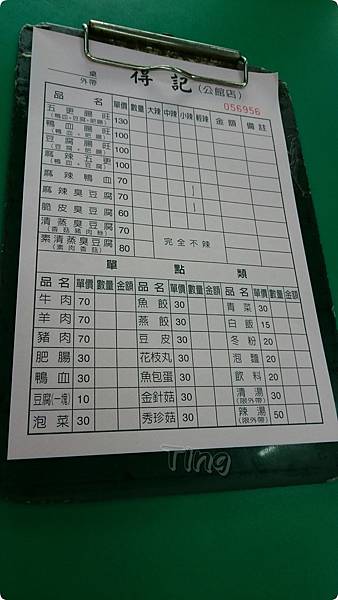 桌
外帶
得記(公館店)
056956
品名 單價 數量 大辣 中辣 小辣 輕辣 金額 備註
五更腸旺 130
(鴨血+豆腐+肥腸)
鴨血腸旺 100
(鴨血+肥腸)
豆腐腸旺 100
(豆腐+肥腸)
麻辣五更 100
(鴨血+豆腐)
麻辣鴨血 70
麻辣臭豆腐 70
脆皮臭豆腐 60
清蒸臭豆腐 70
(香菇豬肉絲)
素清蒸臭豆腐 80 完全不辣
(素肉香菇)
單點類
品名 單價 數量 金額 品名 單價 數量 金額 品名 單價 數量 金額
牛肉 70 魚餃 30 青菜 30
羊肉 70 燕餃 30 白飯 15
豬肉 70 豆皮 30 冬粉 20
肥腸 30 花枝丸 30 泡麵 20
鴨血 30 魚包蛋 30 飲料 20
豆腐(一塊) 10 金針菇 30 清湯 30
(限外帶)
泡菜 30 秀珍菇 30 辣湯 50
(限外帶)
Ting